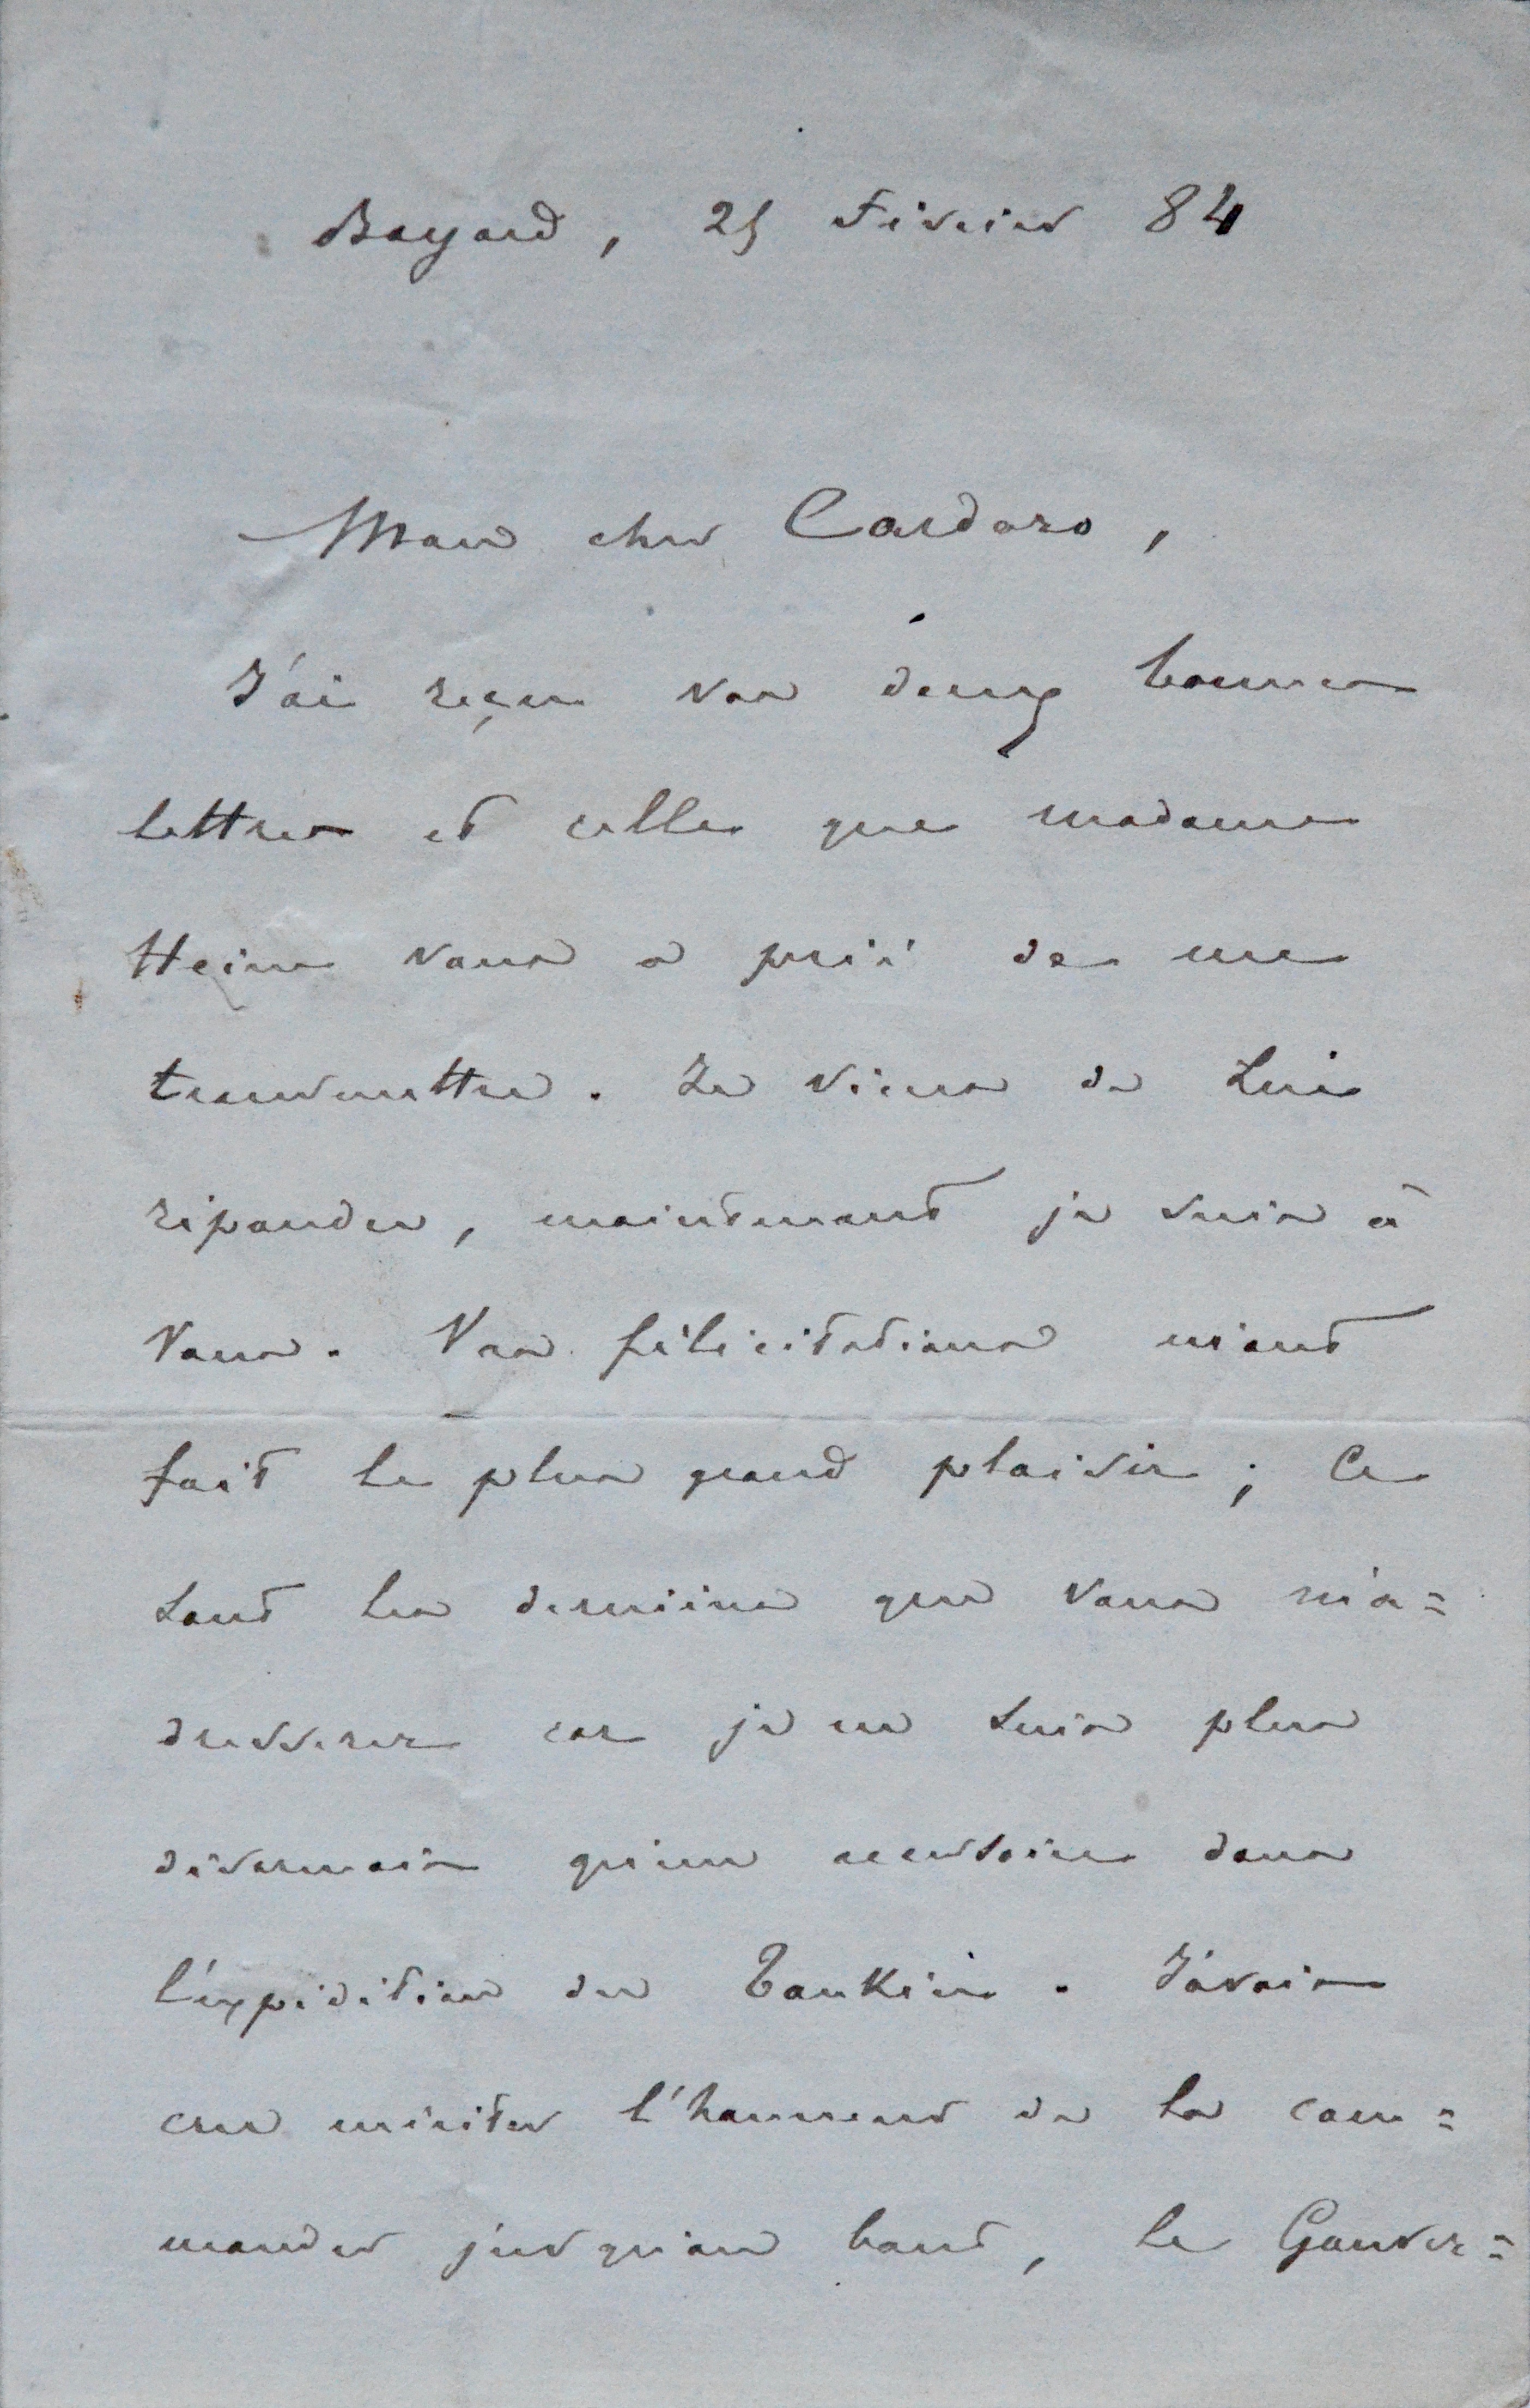 Bayard, 25 Février 84
Mon cher Cardozo,
J'ai reçu vos deux bonnes
lettres et celle que madame
Heine vous a prié de me
transmettre. Je viens de lui
répondre, maintenant je suis à
vous. Vos félicitations m'ont
fait le plus grand plaisir ; ce
sont les dernières que vous m'a=
dresserez car je ne suis plus
désormais qu'un accessoire dans
l'expédition du Tonkin. J'avais
cru mériter l'honneur de la com=
mander jusqu'au bout, le Gouver=